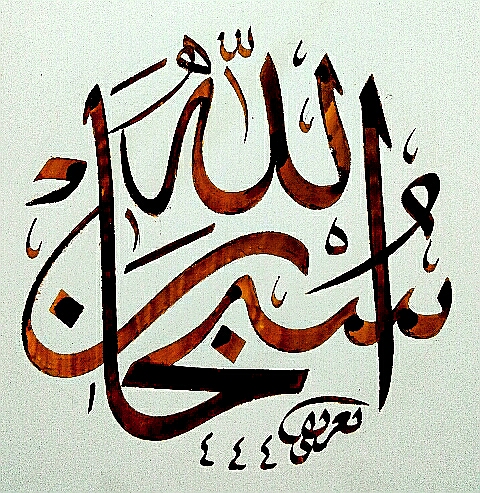 سُبْحَانَ اللّٰه
٤٤٤